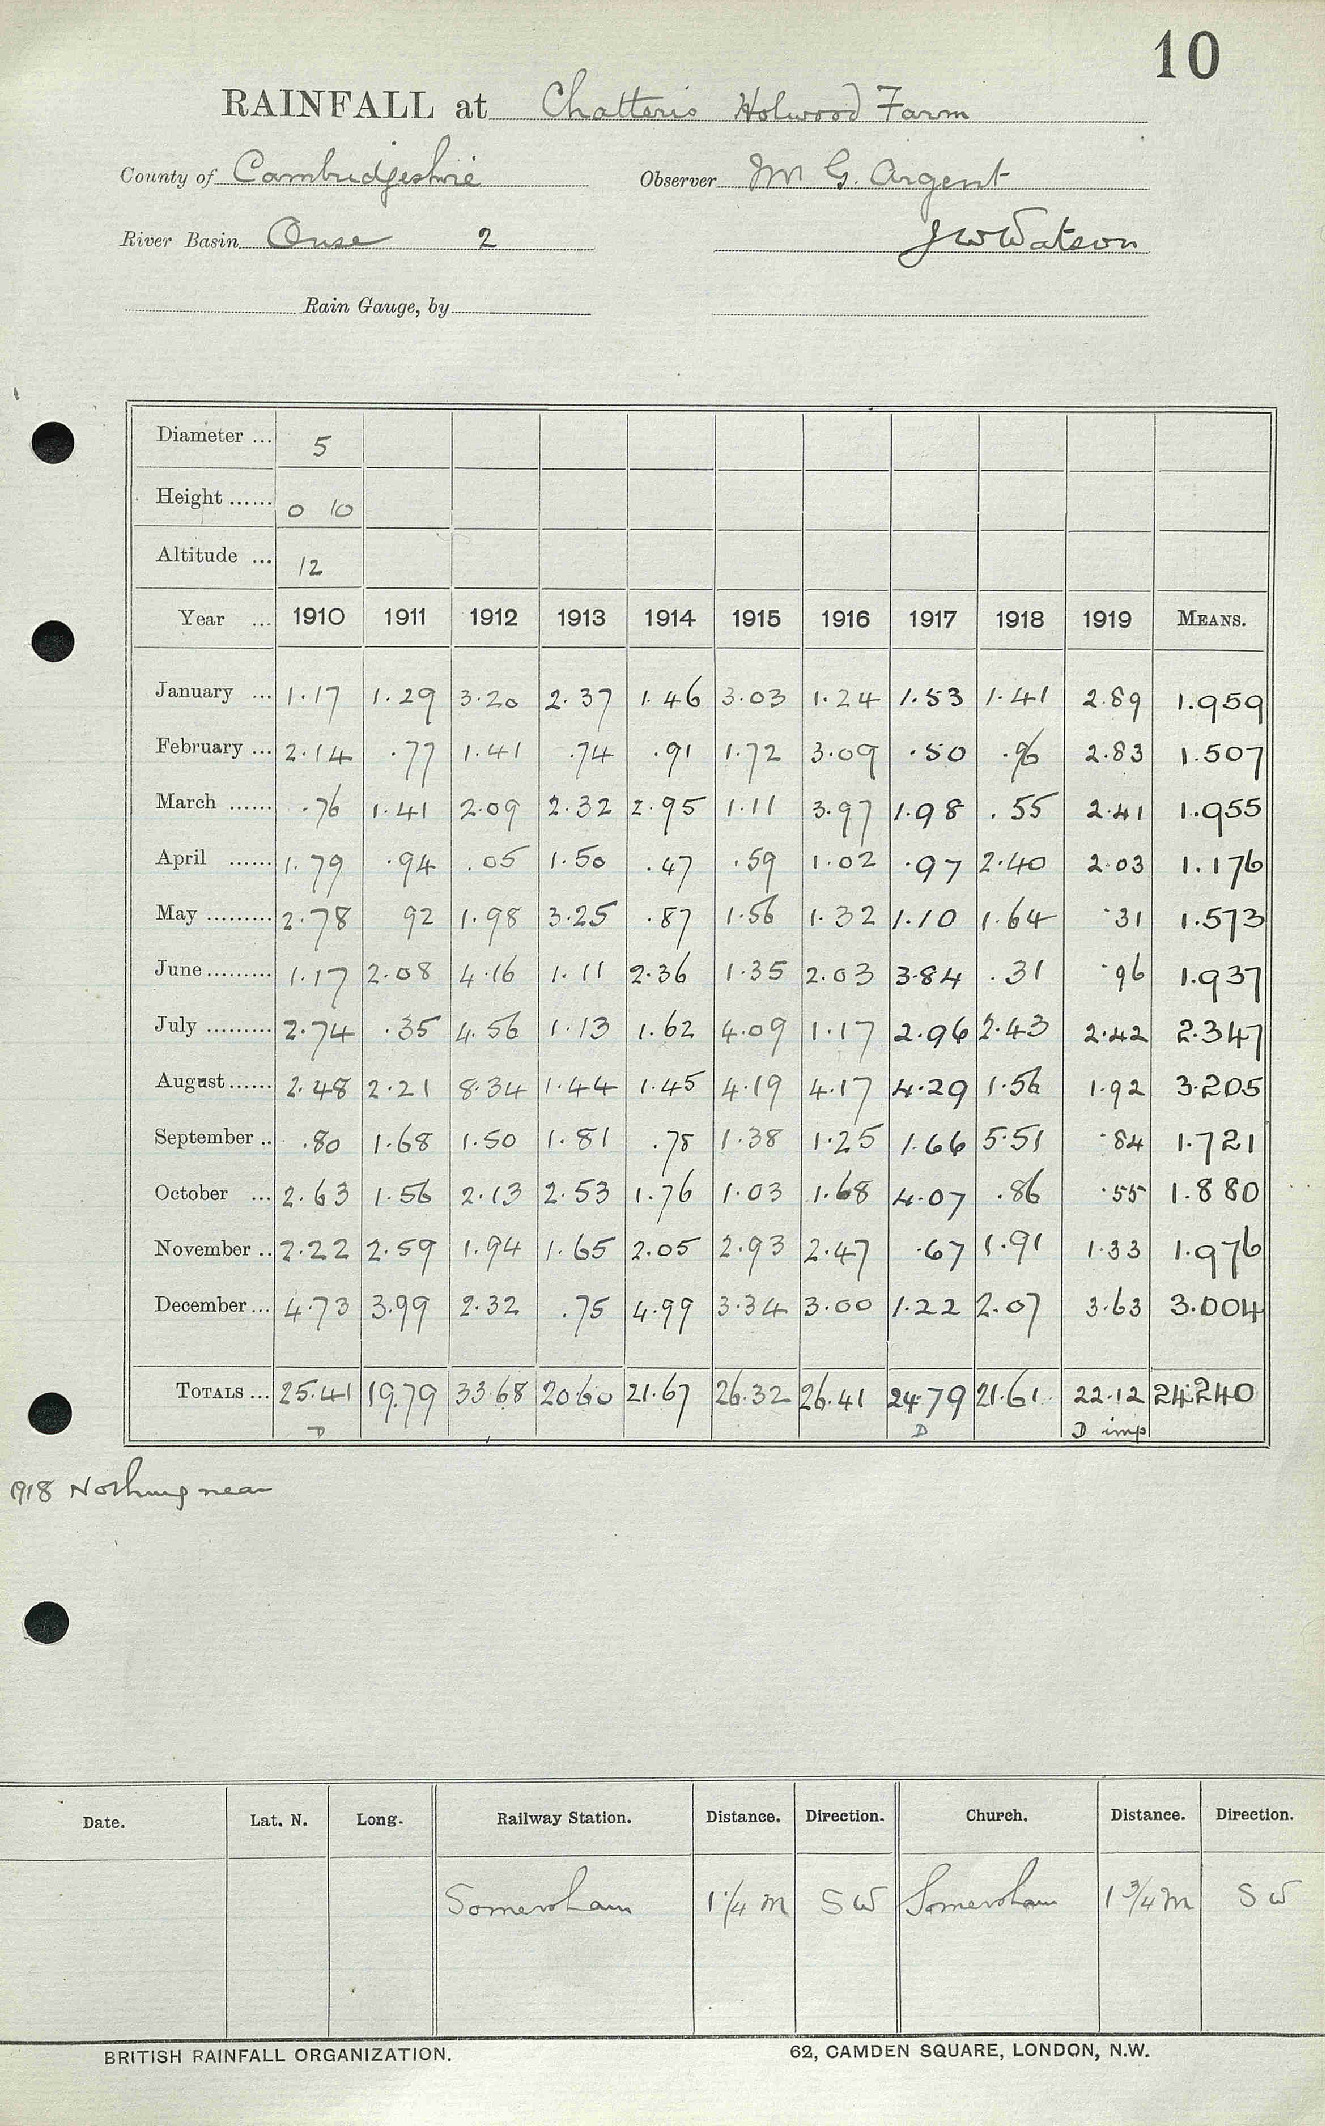 10
RAINFALL at Chatteris Holwood Farm
County of Cambridgeshire Observer Mr G. Argent
River Basin Ouse 2 J W Watson
Rain Gauge, by
Diameter ... 5
Height ...... 0 10
Altitude ... 12
Year ... 1910 1911 1912 1913 1914 1915 1916 1917 1918 1919 MEANS.
January ... 1.17 1.29 3.20 2.37 1.46 3.03 1.24 1.53 1.41 2.89 1.959
February ... 2.14 .77 1.41 .74 .91 1.72 3.09 .50 .96 2.83 1.507
March ...... .76 1.41 2.09 2.32 2.95 1.11 3.97 1.98 .55 2.41 1.955
April ...... 1.79 .94 .05 1.50 .47 .59 1.02 .97 2.40 2.03 1.176
May ......... 2.78 92 1.98 3.25 .87 1.56 1.32 1.10 1.64 .31 1.573
June ......... 1.17 2.08 4.16 1.11 2.36 1.35 2.03 3.84 .31 .96 1.937
July ......... 2.74 .35 4.56 1.13 1.62 4.09 1.17 2.96 2.43 2.42 2.347
August ...... 2.48 2.21 8.34 1.44 1.45 4.19 4.17 4.29 1.56 1.92 3.205
September .. .80 1.68 1.50 1.81 .78 1.38 1.25 1.66 5.51 .84 1.721
October ... 2.63 1.56 2.13 2.53 1.76 1.03 1.68 4.07 .86 .55 1.880
November .. 2.22 2.59 1.94 1.65 2.05 2.93 2.47 .67 1.91 1.33 1.976
December ... 4.73 3.99 2.32 .75 4.99 3.34 3.00 1.22 2.07 3.63 3.004
TOTALS ... 25.41 19.79 33.68 20.60 21.67 26.32 26.41 24.79 21.61 22.12 24.240
D D D imp
1918 Nothing near
Date. Lat. N. Long. Railway Station. Distance. Direction. Church. Distance. Direction.
Somersham 1 1/4 m SW Somersham 1 3/4 m SW
BRITISH RAINFALL ORGANIZATION. 62, CAMDEN SQUARE, LONDON, N.W.